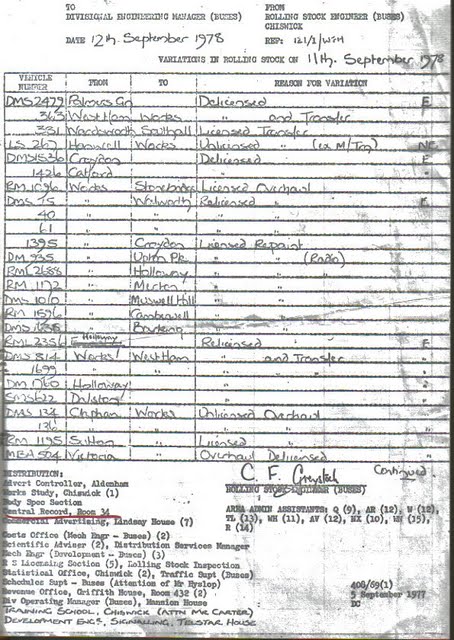 TO FROM
DIVISIONAL ENGINEERING MANAGER (BUSES) ROLLING STOCK ENGINEER (BUSES)
CHISWICK
DATE 12th. September 1978 REF: 121/1/WJH
VARIATIONS IN ROLLING STOCK ON 11th. September 1978
VEHICLE NUMBER FROM TO REASON FOR VARIATION
DMS2479 Palmers Gn Delicensed E
363 West Ham Works " and Transfer
331 Wandsworth Southall Licensed Transfer
LS 267 Hanwell Works Unlicensed (ex M/Trg) NE
DMS1536 Croydon Delicensed E
1426 Catford "
RM 1096 Works Stonebridge Licensed Overhaul
DMS 75 " Walworth Relicensed E
40 " " "
61 " " "
1395 " Croydon Licensed Repaint
DM 935 " Upton Pk " (Radio)
RML 2688 " Holloway "
RM 1172 " Merton "
DMS 1010 " Muswell Hill "
RM 1596 " Camberwell "
DMS 1635 " Barking "
RML 2356 Holloway Relicensed E
DMS 814 Works West Ham " and Transfer "
1699 " " " "
DM 1760 Holloway "
Dalston "
DMS 134 Clapham Works Unlicensed Overhaul
136 " " "
RM 1195 Sutton " Licensed "
MBA 504 Victoria Overhaul Delicensed
Continued
DISTRIBUTION: ROLLING STOCK ENGINEER (BUSES)
Advert Controller, Aldenham
Works Study, Chiswick (1)
Body Spec Section
Central Record, Room 34
Commercial Advertising, Lindsey House (7)
AREA ADMIN ASSISTANTS: Q (9), AR (12), W (12),
TL (13), WH (11), AV (12), HX (10), WN (15),
R (14)
Costs Office (Mech Engr - Buses) (2)
Scientific Adviser (2), Distribution Services Manager
Mech Engr (Development - Buses) (3)
R S Licensing Section (5), Rolling Stock Inspection
Statistical Office, Chiswick (2), Traffic Supt (Buses)
Schedules Supt - Buses (Attention of Mr Hyslop)
Revenue Office, Griffith House, Room 432 (2)
Div Operating Manager (Buses), Mansion House
TRAINING SCHOOL, CHISWICK (ATTN MR CARTER)
DEVELOPMENT ENG'S, SIGNALLING, TELSTAR HOUSE
408/69(1)
5 September 1977
DC